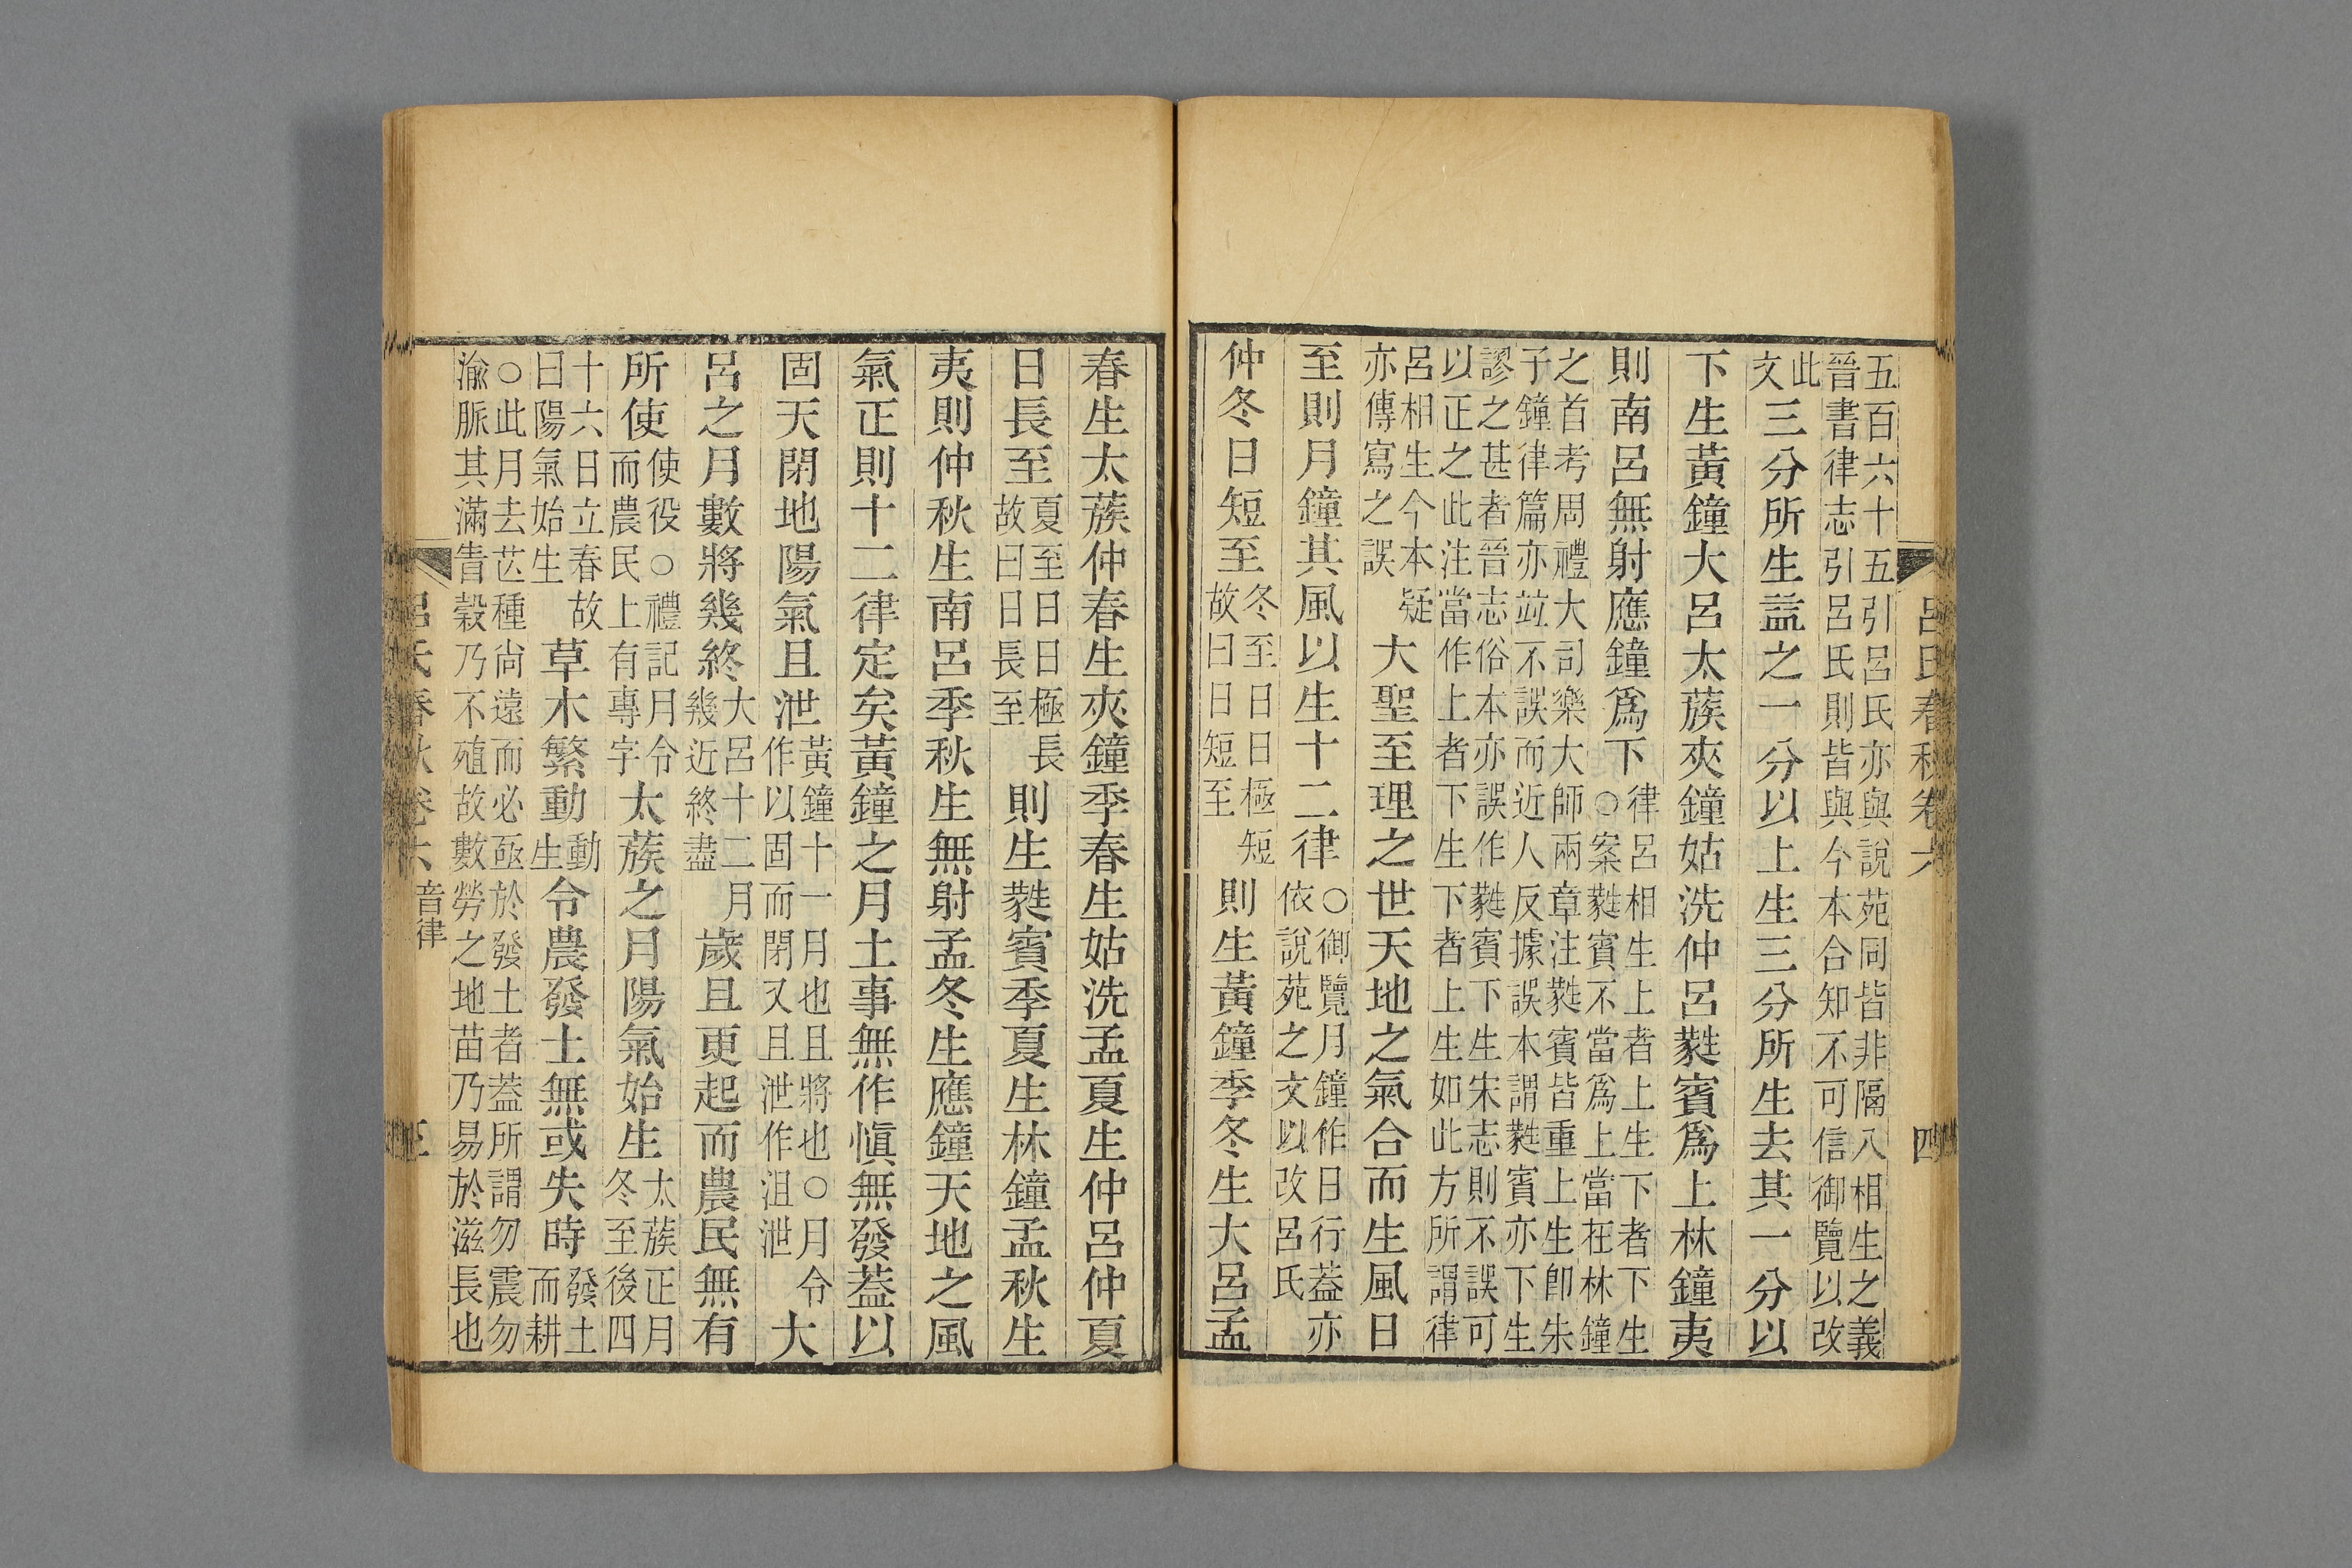 呂氏春秋卷六
四
五百六十五引呂氏亦與說苑同皆非隔八相生之義
晉書律志引呂氏則皆與今本合知不可信御覽以改
此
文
三分所生益之一分以上生三分所生去其一分以
下生黃鐘大呂太蔟夾鐘姑洗仲呂蕤賓爲上林鐘夷
則南呂無射應鐘爲下
律呂相生上者上生下者下生
○案蕤賓不當爲上當在林鐘
之首考周禮大司樂大師兩章注蕤賓皆重上生卽朱
子鐘律篇亦竝不誤而近人反據誤本謂蕤賓亦下生
謬之甚者晉志俗本亦誤作蕤賓下生宋志則不誤可
以正之此注當作上者下生下者上生如此方所謂律
呂相生今本疑
亦傳寫之誤
大聖至理之世天地之氣合而生風日
至則月鐘其風以生十二律
○御覽月鐘作日行葢亦
依說苑之文以改呂氏
仲冬日短至
冬至日日極短
故曰日短至
則生黃鐘季冬生大呂孟
春生太蔟仲春生夾鐘季春生姑洗孟夏生仲呂仲夏
日長至
夏至日日極長
故曰日長至
則生蕤賓季夏生林鐘孟秋生
夷則仲秋生南呂季秋生無射孟冬生應鐘天地之風
氣正則十二律定矣黃鐘之月土事無作愼無發葢以
固天閉地陽氣且泄
黃鐘十一月也且將也○月令
作以固而閉又且泄作沮泄
大
呂之月數將幾終
大呂十二月
幾近終盡
歲且更起而農民無有
所使
使役○禮記月令
而農民上有專字
太蔟之月陽氣始生
太蔟正月
冬至後四
十六日立春故
曰陽氣始生
草木繁動
動
生
令農發土無或失時
發土
而耕
○此月去芒種尙遠而必亟於發土者葢所謂勿震勿
渝脈其滿眚穀乃不殖故數勞之地苗乃易於滋長也
呂氏春秋卷六
音律
五